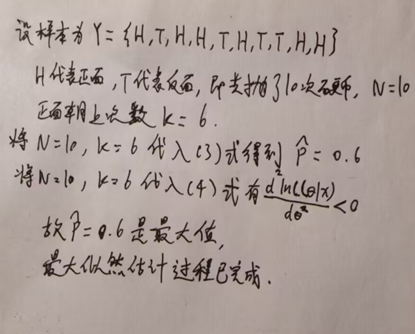 设样本为 Y = {H,T,H,H,T,H,T,T,H,H}
H代表正面,T代表反面,即共抛了10次硬币,N=10
正面朝上次数 k=6.
将 N=10, k=6 代入(3)式得到 p̂ = 0.6
将 N=10, k=6 代入(4)式有 d²lnL(θ|x)/dθ² < 0
故 p̂=0.6 是最大值,
最大似然估计过程已完成.